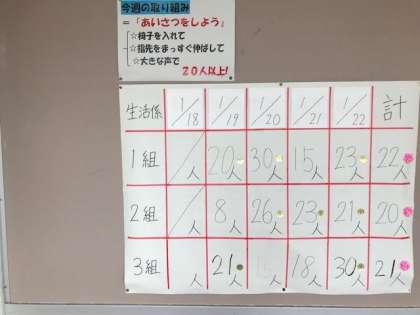 今週の取り組み
＝「あいさつをしよう」
☆椅子を入れて
☆指先をまっすぐ伸ばして
☆大きな声で
20人以上!
生活係 1/18 1/19 1/20 1/21 1/22 計
1組 人 20人 30人 15人 23人 22人
2組 人 8人 26人 23人 21人 20人
3組 人 21人 人 18人 30人 21人